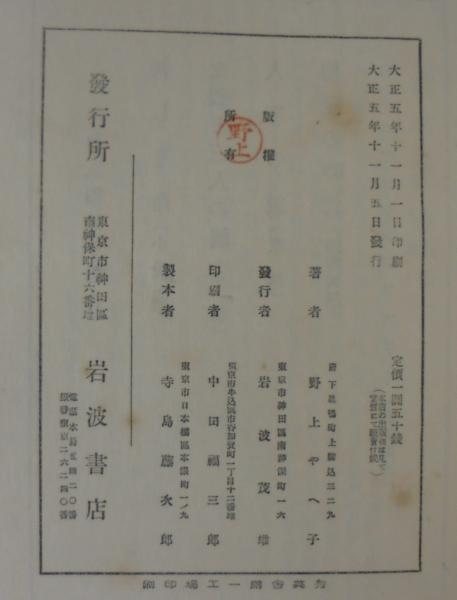 大正五年十一月一日印刷
大正五年十一月五日發行
定價一圓五十錢
版權
所有
野上
著者
府下巢鴨町上駒込三二九
野上やへ子
發行者
東京市神田區南神保町一六
岩波茂雄
印刷者
東京市牛込區市谷加賀町一丁目十二番地
中田福三郎
製本者
東京市日本橋區本銀町一ノ九
寺島藤次郎
發行所
東京市神田區
南神保町十六番地
岩波書店